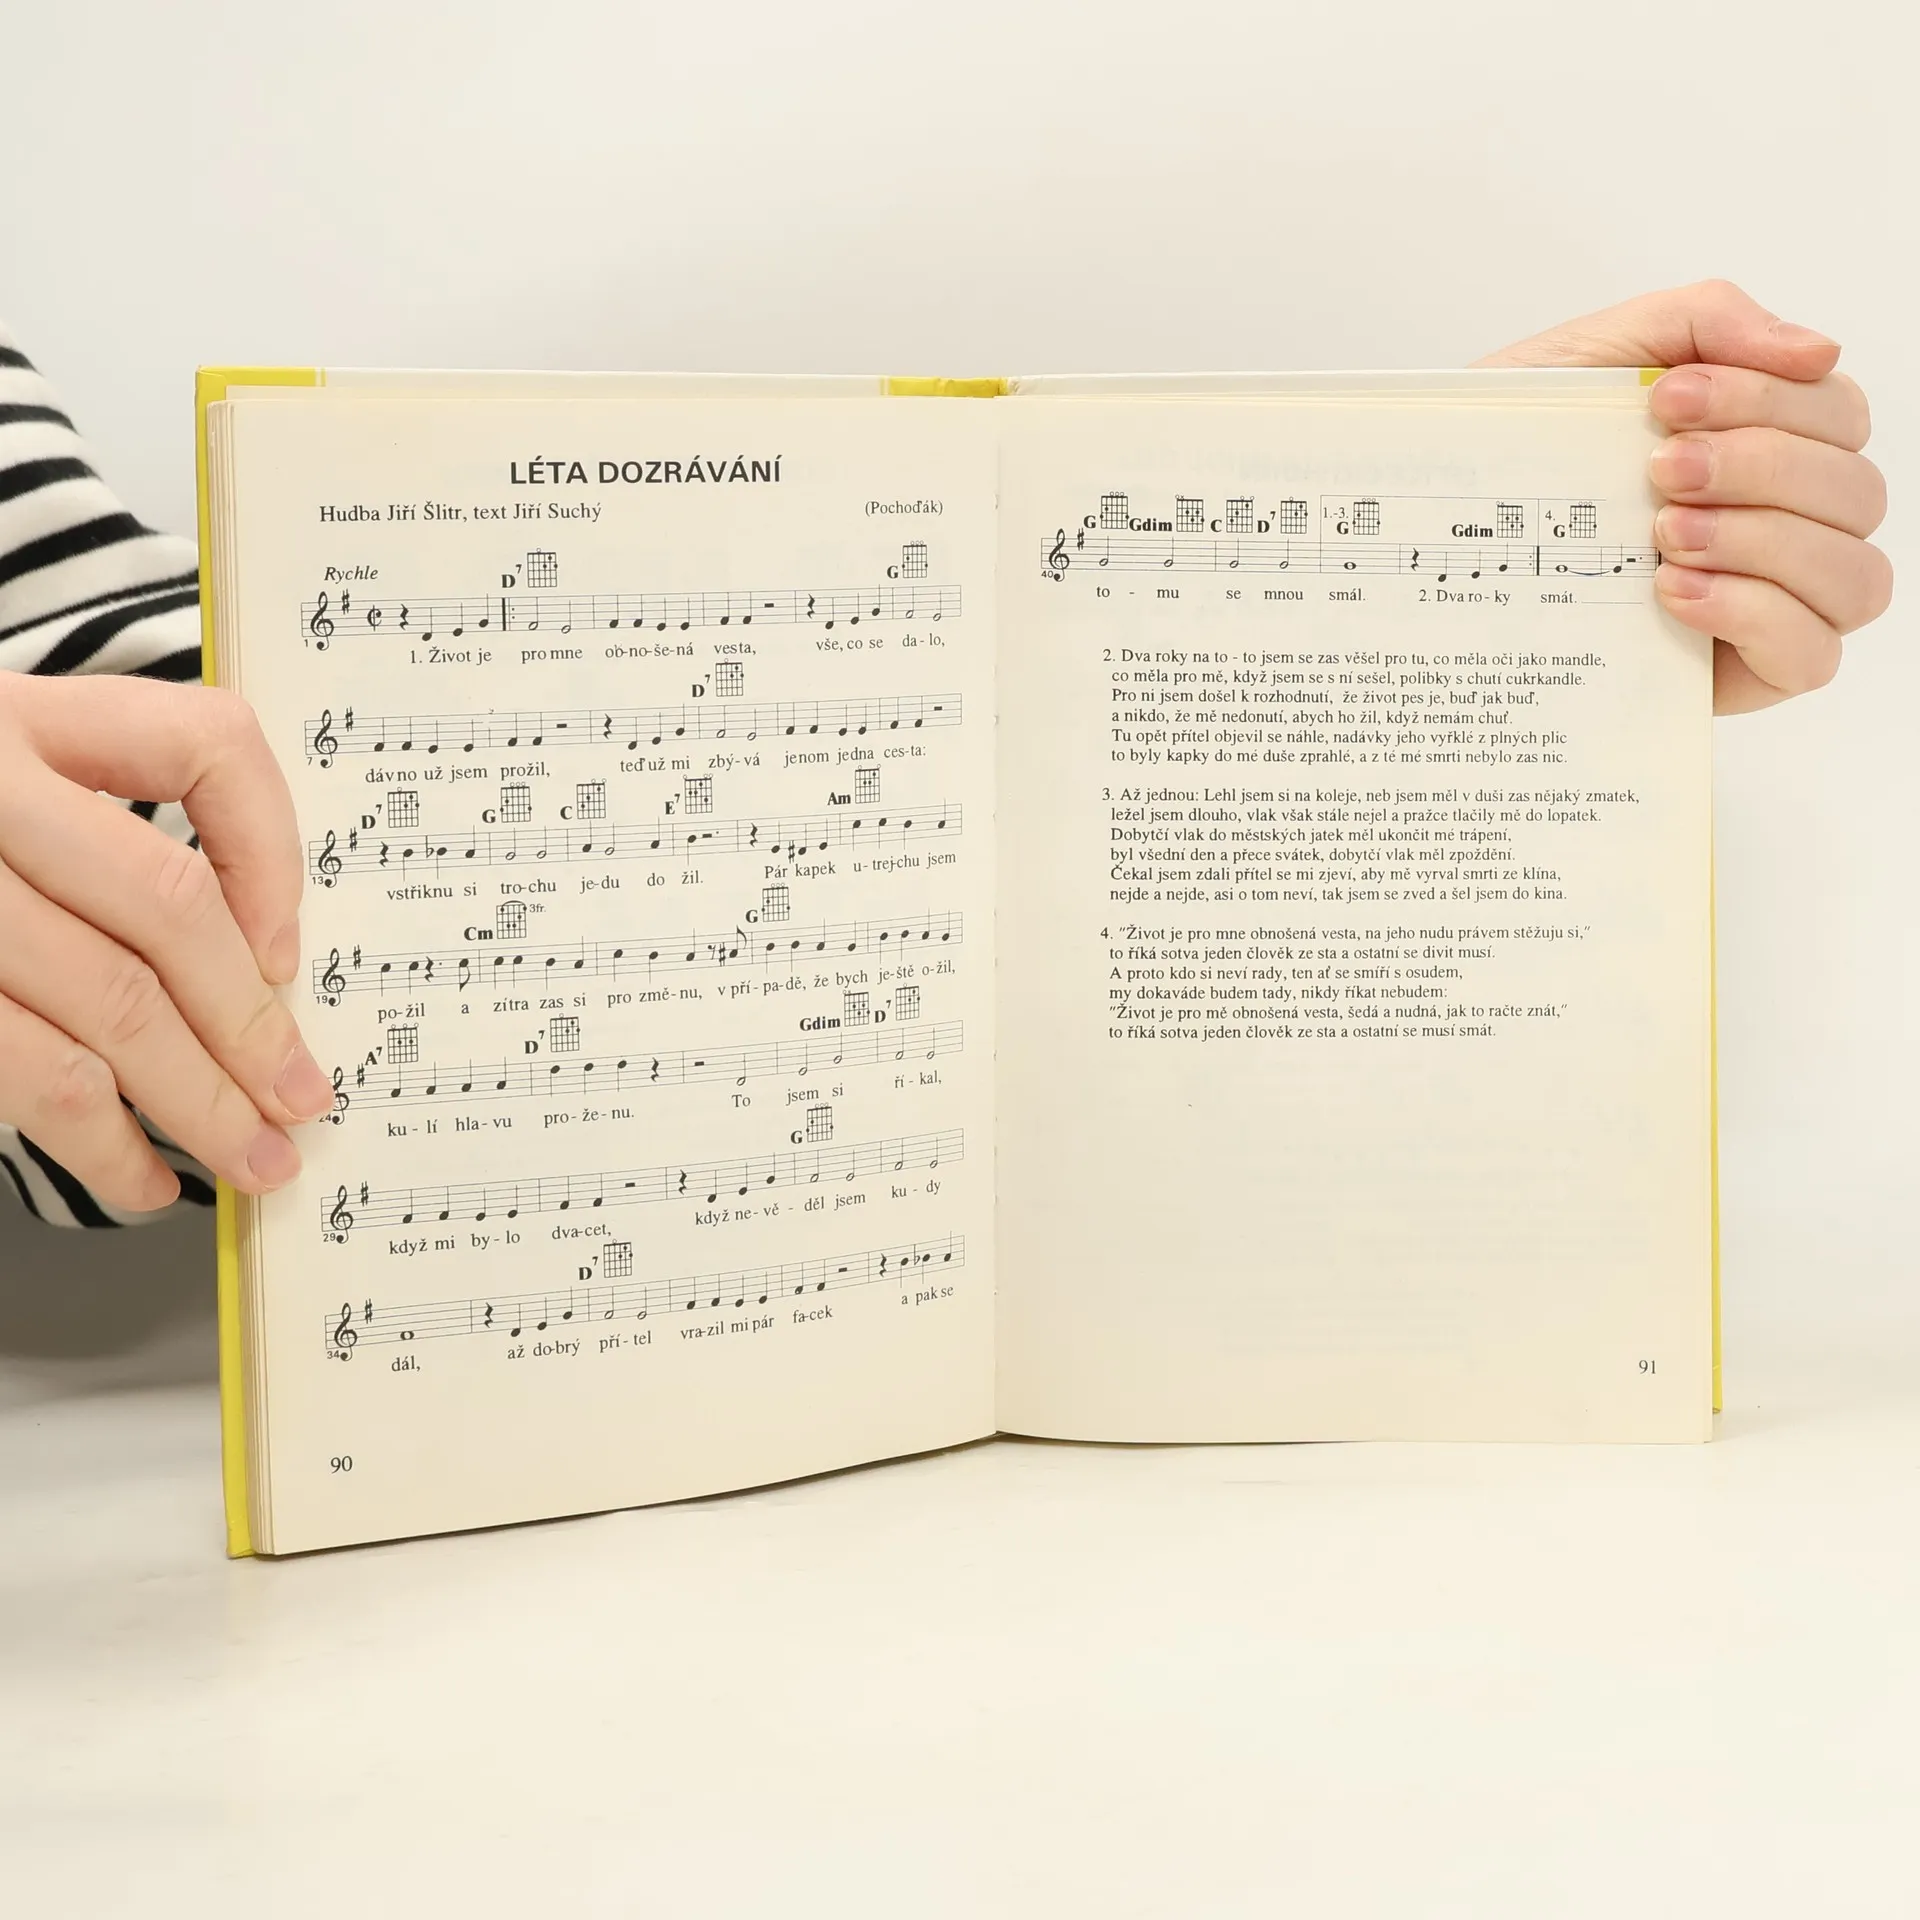 LÉTA DOZRÁVÁNÍ
Hudba Jiří Šlitr, text Jiří Suchý
(Pochoďák)
Rychle
D7 G
1
1. Život je pro mne ob-no-še-ná vesta, vše, co se da-lo,
D7
7
dávno už jsem prožil, teď už mi zbý-vá jenom jedna ces-ta:
D7 G C E7 Am
13
vstřiknu si tro-chu je-du do žil. Pár kapek u-trej-chu jsem
Cm 3fr. G
19
po-žil a zítra zas si pro změ-nu, v pří-pa-dě, že bych je-ště o-žil,
A7 D7 Gdim D7
24
ku-lí hla-vu pro-že-nu. To jsem si ří-kal,
G
29
když mi by-lo dva-cet, když ne-vě-děl jsem ku-dy
D7
34
dál, až do-brý pří-tel vra-zil mi pár fa-cek a pak se
90
G Gdim C D7 1.-3. G Gdim 4. G
40
to - mu se mnou smál. 2. Dva ro-ky smát.
2. Dva roky na to - to jsem se zas věšel pro tu, co měla oči jako mandle,
co měla pro mě, když jsem se s ní sešel, polibky s chutí cukrkandle.
Pro ni jsem došel k rozhodnutí, že život pes je, buď jak buď,
a nikdo, že mě nedonutí, abych ho žil, když nemám chuť.
Tu opět přítel objevil se náhle, nadávky jeho vyřklé z plných plic
to byly kapky do mé duše zprahlé, a z té mé smrti nebylo zas nic.
3. Až jednou: Lehl jsem si na koleje, neb jsem měl v duši zas nějaký zmatek,
ležel jsem dlouho, vlak však stále nejel a pražce tlačily mě do lopatek.
Dobytčí vlak do městských jatek měl ukončit mé trápení,
byl všední den a přece svátek, dobytčí vlak měl zpoždění.
Čekal jsem zdali přítel se mi zjeví, aby mě vyrval smrti ze klína,
nejde a nejde, asi o tom neví, tak jsem se zved a šel jsem do kina.
4. "Život je pro mne obnošená vesta, na jeho nudu právem stěžuju si,"
to říká sotva jeden člověk ze sta a ostatní se divit musí.
A proto kdo si neví rady, ten ať se smíří s osudem,
my dokaváde budem tady, nikdy říkat nebudem:
"Život je pro mě obnošená vesta, šedá a nudná, jak to račte znát,"
to říká sotva jeden člověk ze sta a ostatní se musí smát.
91